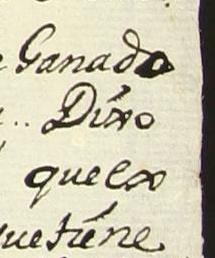 Ganado
.. Dixo
que es
que tiéne